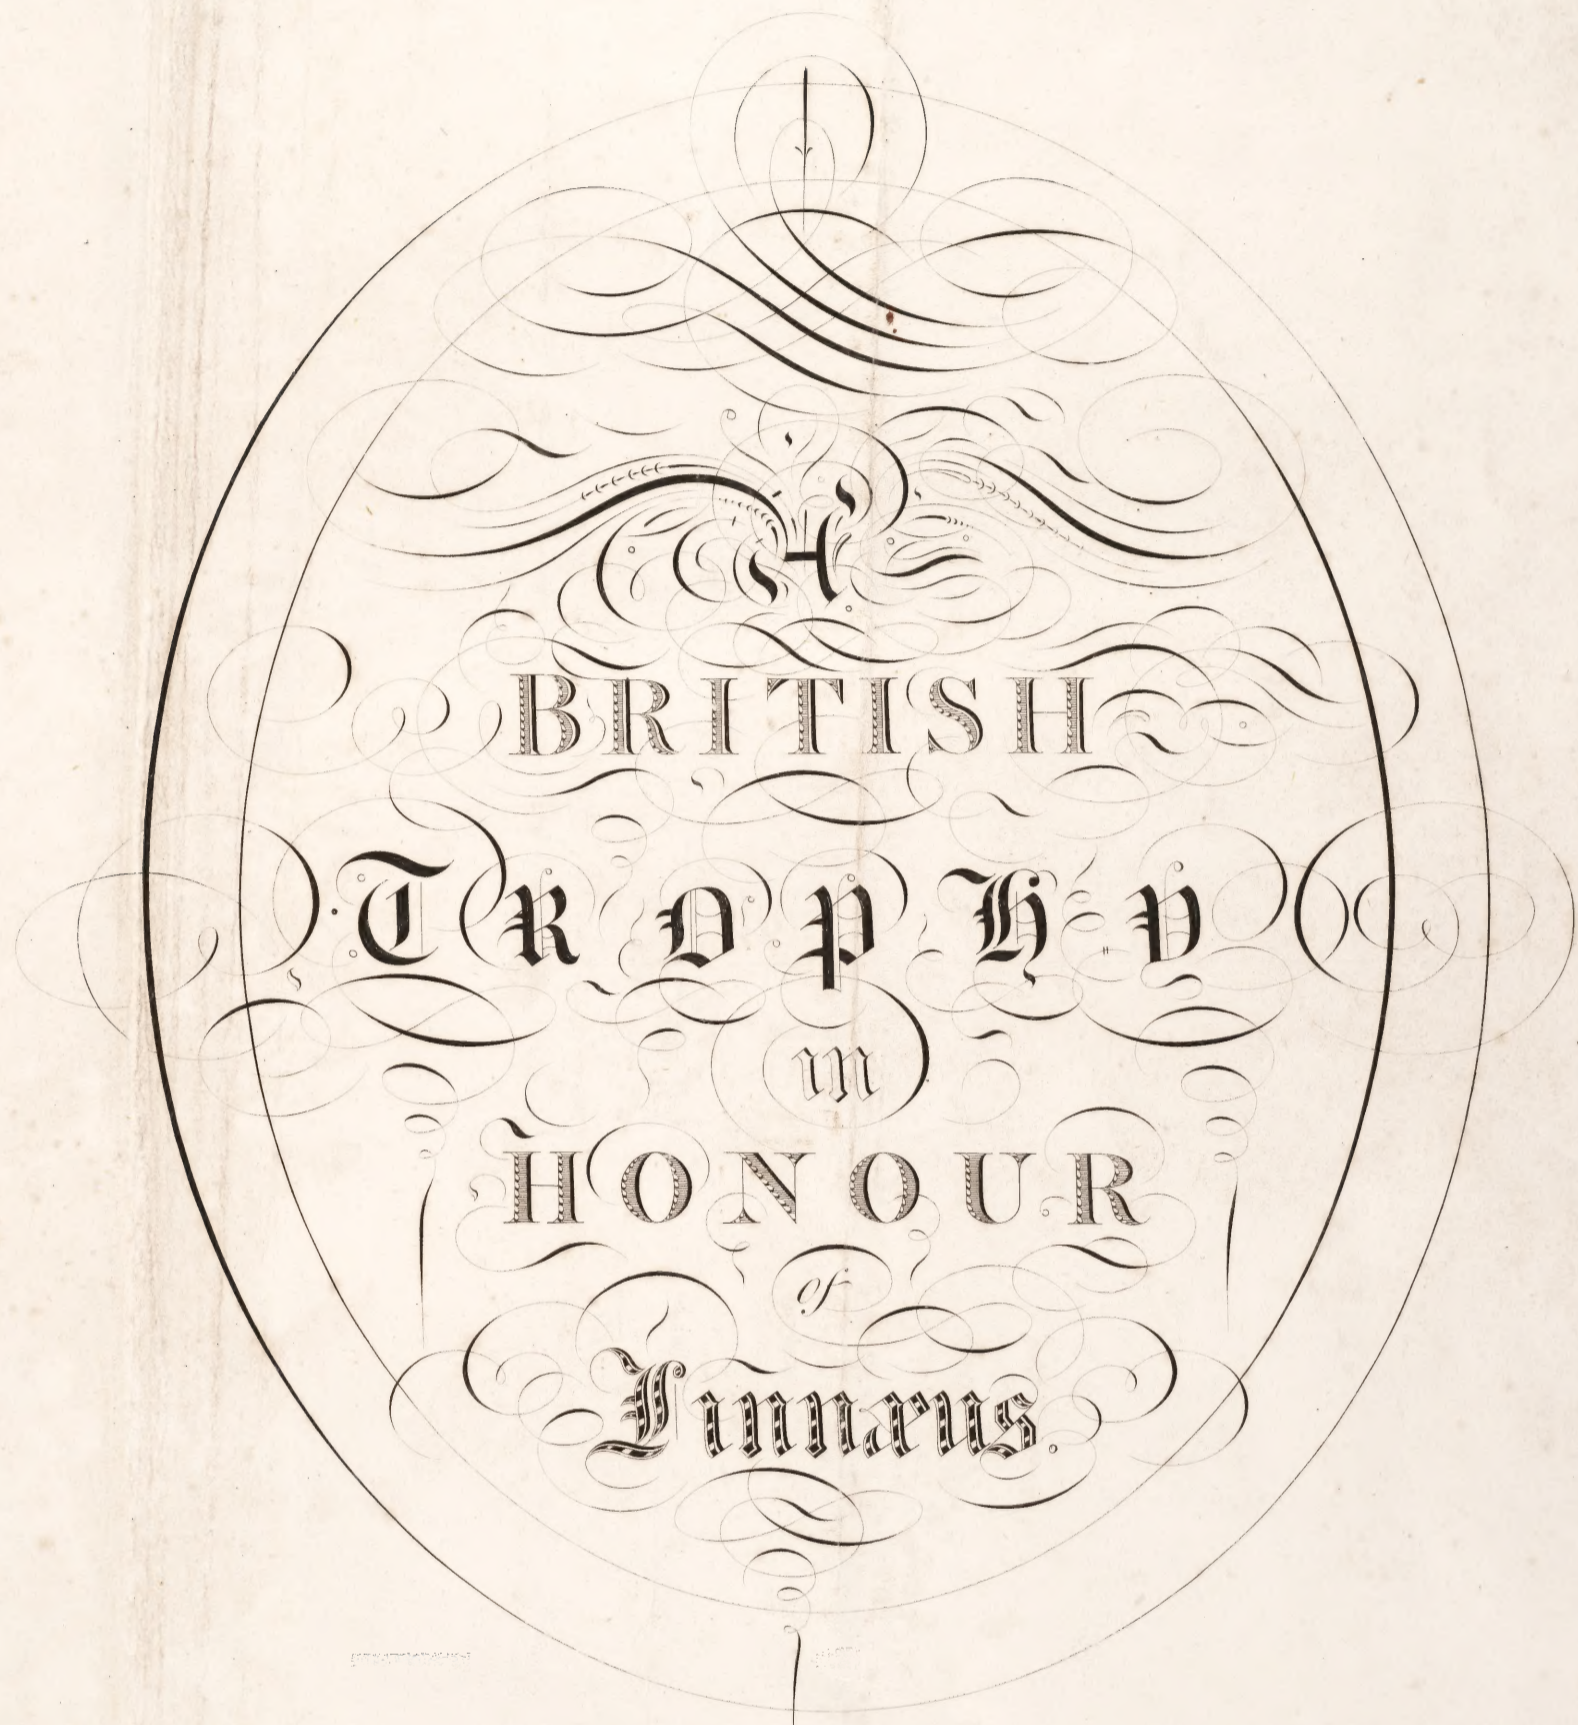 A
BRITISH
TROPHY
in
HONOUR
of
Linnæus.